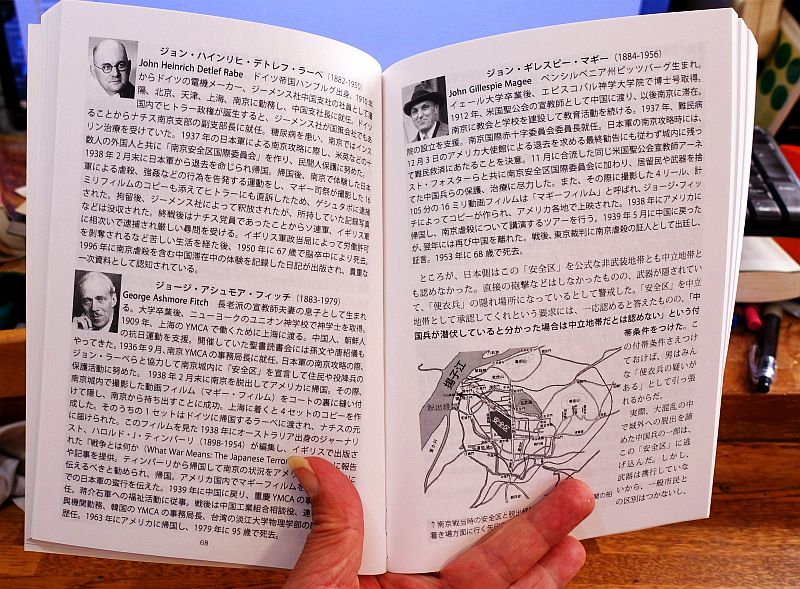 ジョン・ハインリヒ・デトレフ・ラーベ (1882-1950)
John Heinrich Detlef Rabe ドイツ帝国ハンブルグ出身。1910年
からドイツの電機メーカー、ジーメンス社中国支社の社員として瀋
陽、北京、天津、上海、南京に勤務し、中国支社長に就任。ドイツ
国内でヒトラー政権が誕生すると、ジーメンス社が国策会社でもあ
ることからナチス南京支部の副支部長に就任。糖尿病を患い、南京ではインス
リン治療を受けていた。1937年の日本軍による南京攻略に際し、米英などの十
数人の外国人と共に「南京安全区国際委員会」を作り、民間人保護に努めた。
1938年2月末に日本軍から退去を命じられ帰国。帰国後、南京で体験した日本
軍による虐殺、強姦などの行為を告発する運動をし、マギー司祭が撮影した16
ミリフィルムのコピーも添えてヒトラーにも直訴したため、ゲシュタポに逮捕
された。拘留後、ジーメンス社によって釈放されたが、所持していた記録写真
などは没収された。終戦後はナチス党員であったことからソ連軍、イギリス軍
に相次いで逮捕され厳しい尋問を受ける。イギリス軍政当局によって労働許可
を剥奪されるなど苦しい生活を経た後、1950年に67歳で脳卒中により死去。
1996年に南京虐殺を含む中国滞在中の体験を記録した日記が出版され、貴重な
一次資料として認知されている。
ジョージ・アシュモア・フィッチ (1883-1979)
George Ashmore Fitch 長老派の宣教師夫妻の息子として生まれ
る。大学卒業後、ニューヨークのユニオン神学校で神学士を取得。
1909年、上海のYMCAで働くために上海に渡る。中国人、朝鮮人
の抗日運動を支援。開催していた聖書読書会には孫文や唐紹儀も
やってきた。1936年9月、南京YMCAの事務局長に就任。日本軍の南京攻略の際、
ジョン・ラーベらと協力して南京城内に「安全区」を宣言して住民や投降兵の
保護活動に努めた。1938年2月末に南京を脱出してアメリカに帰国。その際、
南京城内で撮影した動画フィルム（マギー・フィルム）をコートの裏に縫い付
けて隠し、南京から持ち出すことに成功。上海に着くと4セットのコピーを作
成した。そのうちの1セットはドイツに帰国するラーベに渡され、ナチスの元
に届けられた。このフィルムを見た1938年にオーストラリア出身のジャーナリ
スト、ハロルド・J・ティンパリー (1898-1954) が編集し、イギリスで出版さ
れた『戦争とは何か (What War Means: The Japanese Terror
や記事を提供。ティンパリーから帰国して南京の状況をアメリカ
伝えるべきと勧められ、帰国。アメリカ国内でマギーフィルムを
での日本軍の蛮行を伝えた。1939年に中国に戻り、重慶YMCAの事
任。蒋介石軍への福祉活動に従事。戦後は中国工業組合相談役、連
興機関勤務、韓国のYMCAの事務局長、台湾の淡江大学物理学部の
歴任。1963年にアメリカに帰国し、1979年に95歳で死去。
68
ジョン・ギレスピー・マギー (1884-1956)
John Gillespie Magee ペンシルベニア州ピッツバーグ生まれ。
イェール大学卒業後、エピスコパル神学大学院で博士号取得。
1912年、米国聖公会の宣教師として中国に渡り、以後南京に滞在。
南京に教会と学校を建設して教育活動を続ける。1937年、難民病
院の設立を支援。南京国際赤十字委員会委員長就任。日本軍の南京攻略時には、
12月3日のアメリカ大使館による退去を求める最終勧告にも従わず城内に残っ
て難民救済にあたることを決意。11月に合流した同じ米国聖公会宣教師アーネ
スト・フォスターらと共に南京安全区国際委員会に加わり、居留民や武器を捨
てた中国兵らの保護、治療に尽力した。また、その際に撮影した4リール、計
105分の16ミリ動画フィルムは「マギーフィルム」と呼ばれ、ジョージ・フィッ
チによってコピーが作られ、アメリカ各地で上映された。1938年にアメリカに
帰国し、南京虐殺について講演するツアーを行う。1939年5月に中国に戻った
が、翌年には再び中国を離れた。戦後、東京裁判に南京虐殺の証人として出廷し、
証言。1953年に68歳で死去。
ところが、日本側はこの「安全区」を公式な非武装地帯とも中立地帯と
も認めなかった。直接の砲撃などはしなかったものの、武器が隠されてい
て、「便衣兵」の隠れ場所になっているとして警戒した。「安全区」を中立
地帯として承認してくれという要求には、一応認めると答えたものの、「中
国兵が潜伏していると分かった場合は中立地帯だとは認めない」という付
帯条件をつけた。こ
の付帯条件さえつけ
ておけば、男はみん
な「便衣兵の疑いが
ある」として引っ張
れるからだ。
実際、大混乱の中
で城外への脱出を諦
めた中国兵の一部は、
この「安全区」に逃
げ込んだ。しかし、
武器は携行していな
いから、一般市民と
の区別はつかないし、
揚子江
脱出経
安全区
↑南京戦当時の安全区と脱出経
着き場方面に行く矢印
間の船